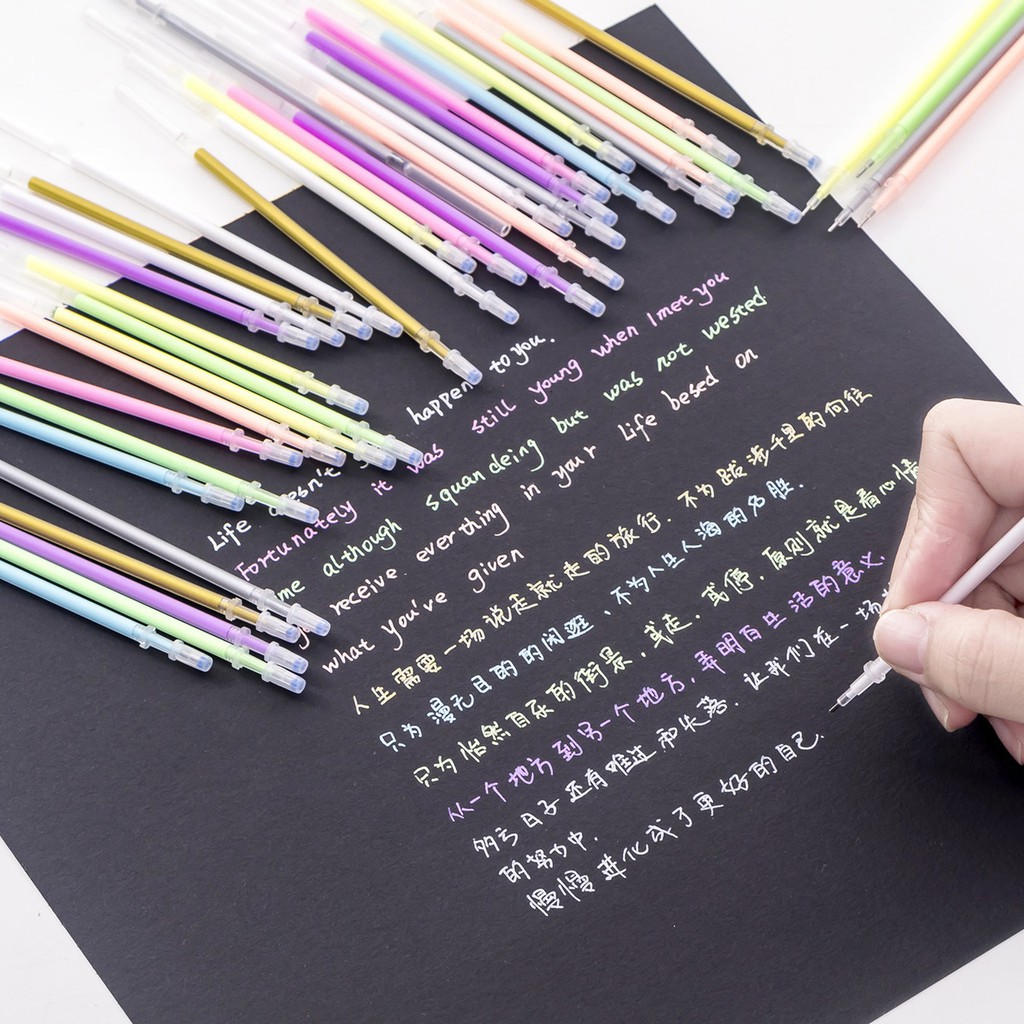 happen to you.
Life doesn't
Fortunately it was still young when I met you
me although squandeing but was not wested
receive everthing in your life besed on
what you've given
人生需要一场说走就走的旅行.不为跋涉千里的向往
只为漫无目的的闲逛、不为人生人海的名胜.
只为怡然自乐的街景,或走.或停.原则就是看心情
从一个地方到另一个地方,弄明白生活的意义.
的亏日子还有难过和失落.让我们在一场
的努力中.
慢慢进化成了更好的自己.